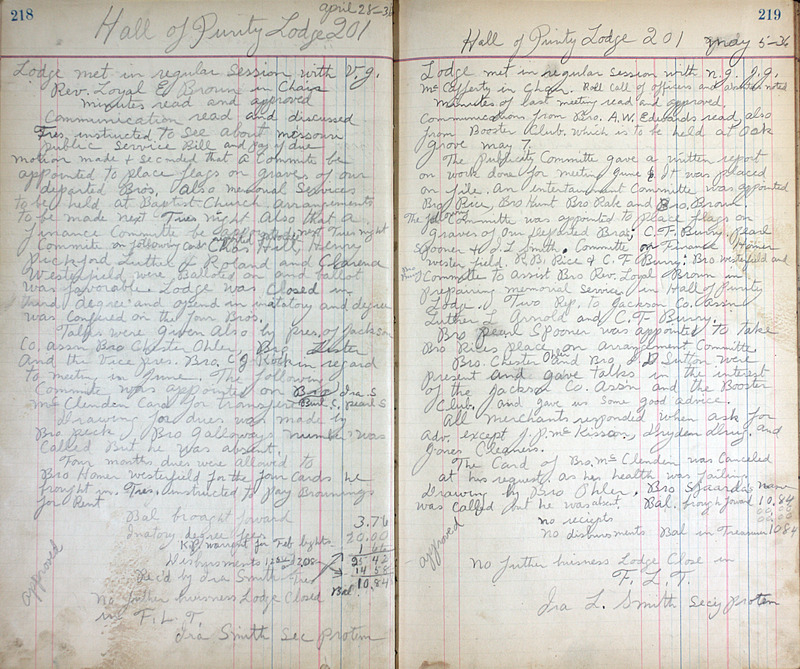 218
april 28-36
Hall of Purity Lodge 201
Lodge met in regular Session with V.g.
Rev. Loyal E Brown in Chair
minutes read and approved
Communication read and discussed
Tres, instructed to see about missouri
public Service Bill and pay if due
motion made & seconded that a Commite be
appointed to place flags on graves of our
departed Bros. also memorial Services
to be held at Baptist Church arrangements
to be made next Tues night also that a
finance Committe be appointed next Tues night
Commite on following cards Chas Hall, Henry
Pickford Luttel & Roland and Clarence
Westerfield were Balloted on and ballot
was favorable. Lodge was Closed in
third degree and opend in Inatatory and degree
was confered on the four Bros.
Talks were given also by pres. of Jackson
Co. assn Bro Chester Ohler, Bro Luster
and the Vice pres. Bro. C J Koch in regard
to meeting in June. The following
Commite was appointed on Bro Ira S
Mc Clenden Card for transfer Burt C, pearl S
Drawing for dues was made by
Bro peck Bro Galloways number was
Called But he was absent.
Four months dues were allowed to
Bro Homer Westerfield for the four Cards he
brought in. Tres. instructed to pay Brownings
for Rent
Bal brought forward 3.76
Inatory degree fees 20.00
K.P. warrant for Feb lights 1 66
Disbursments 25 42
Rec'd by Ira Smith Tres 14 58
Bal 10.84
No futher buisness Lodge Closed
in F. L. T.
Ira Smith Sec Protem
approved
219
Hall of Purity Lodge 201 may 5-36
Lodge met in regular session with n.g. J.G.
Mc Cafferty in Chair. Roll call of officers and absentees noted
Minutes of last meeting read and approved.
Communications from Bro. A.W. Edwards read, also
from Booster Club. which is to be held at Oak
grove may 7.
The Publicity Committe gave a written report
on work done for meeting June 6 It was placed
on file. An entertainment Committe was appointed
Bro Rice, Bro Hunt Bro Rake and Bro. Brown
The following Committe was appointed to place flags on
graves of Our Departed Bros. C. F. Burry, Pearl
Spooner & I. L. Smith. Committe on Finance Homer
Westerfield, R.B. Rice & C. F. Burry. Bro Westerfield and
Committe to assist Bro Rev. Loyal Brown in
Prepairing memorial Service in Hall of Purity
Lodge. Two Rep. to Jackson Co. Assn
Luther L Arnold and C. F. Burry.
Bro pearl Spooner was appointed to take
Bro Rices place on arrangement Committe
Bro. Chester Ohler and Bro. Sutton were
present and gave talks in the interest
of the Jackson Co. Assn and the Booster
Club, and gave us some good advice.
All merchants responded when ask for
Adv. except J. P. Mc Kisson, Dryden Drug. and
Jones Cleaners.
The Card of Bro. Mc Clenden was Canceled
at his request. as his health was failing
Drawing by Bro Ohler. Bro name
was called but he was absent. Bal. brought forward 10.84
No recepts
No disbursments Bal in Treasurer 10 84
approved
No futher buisness Lodge Close in
F. L. T.
Ira L. Smith Secy protem